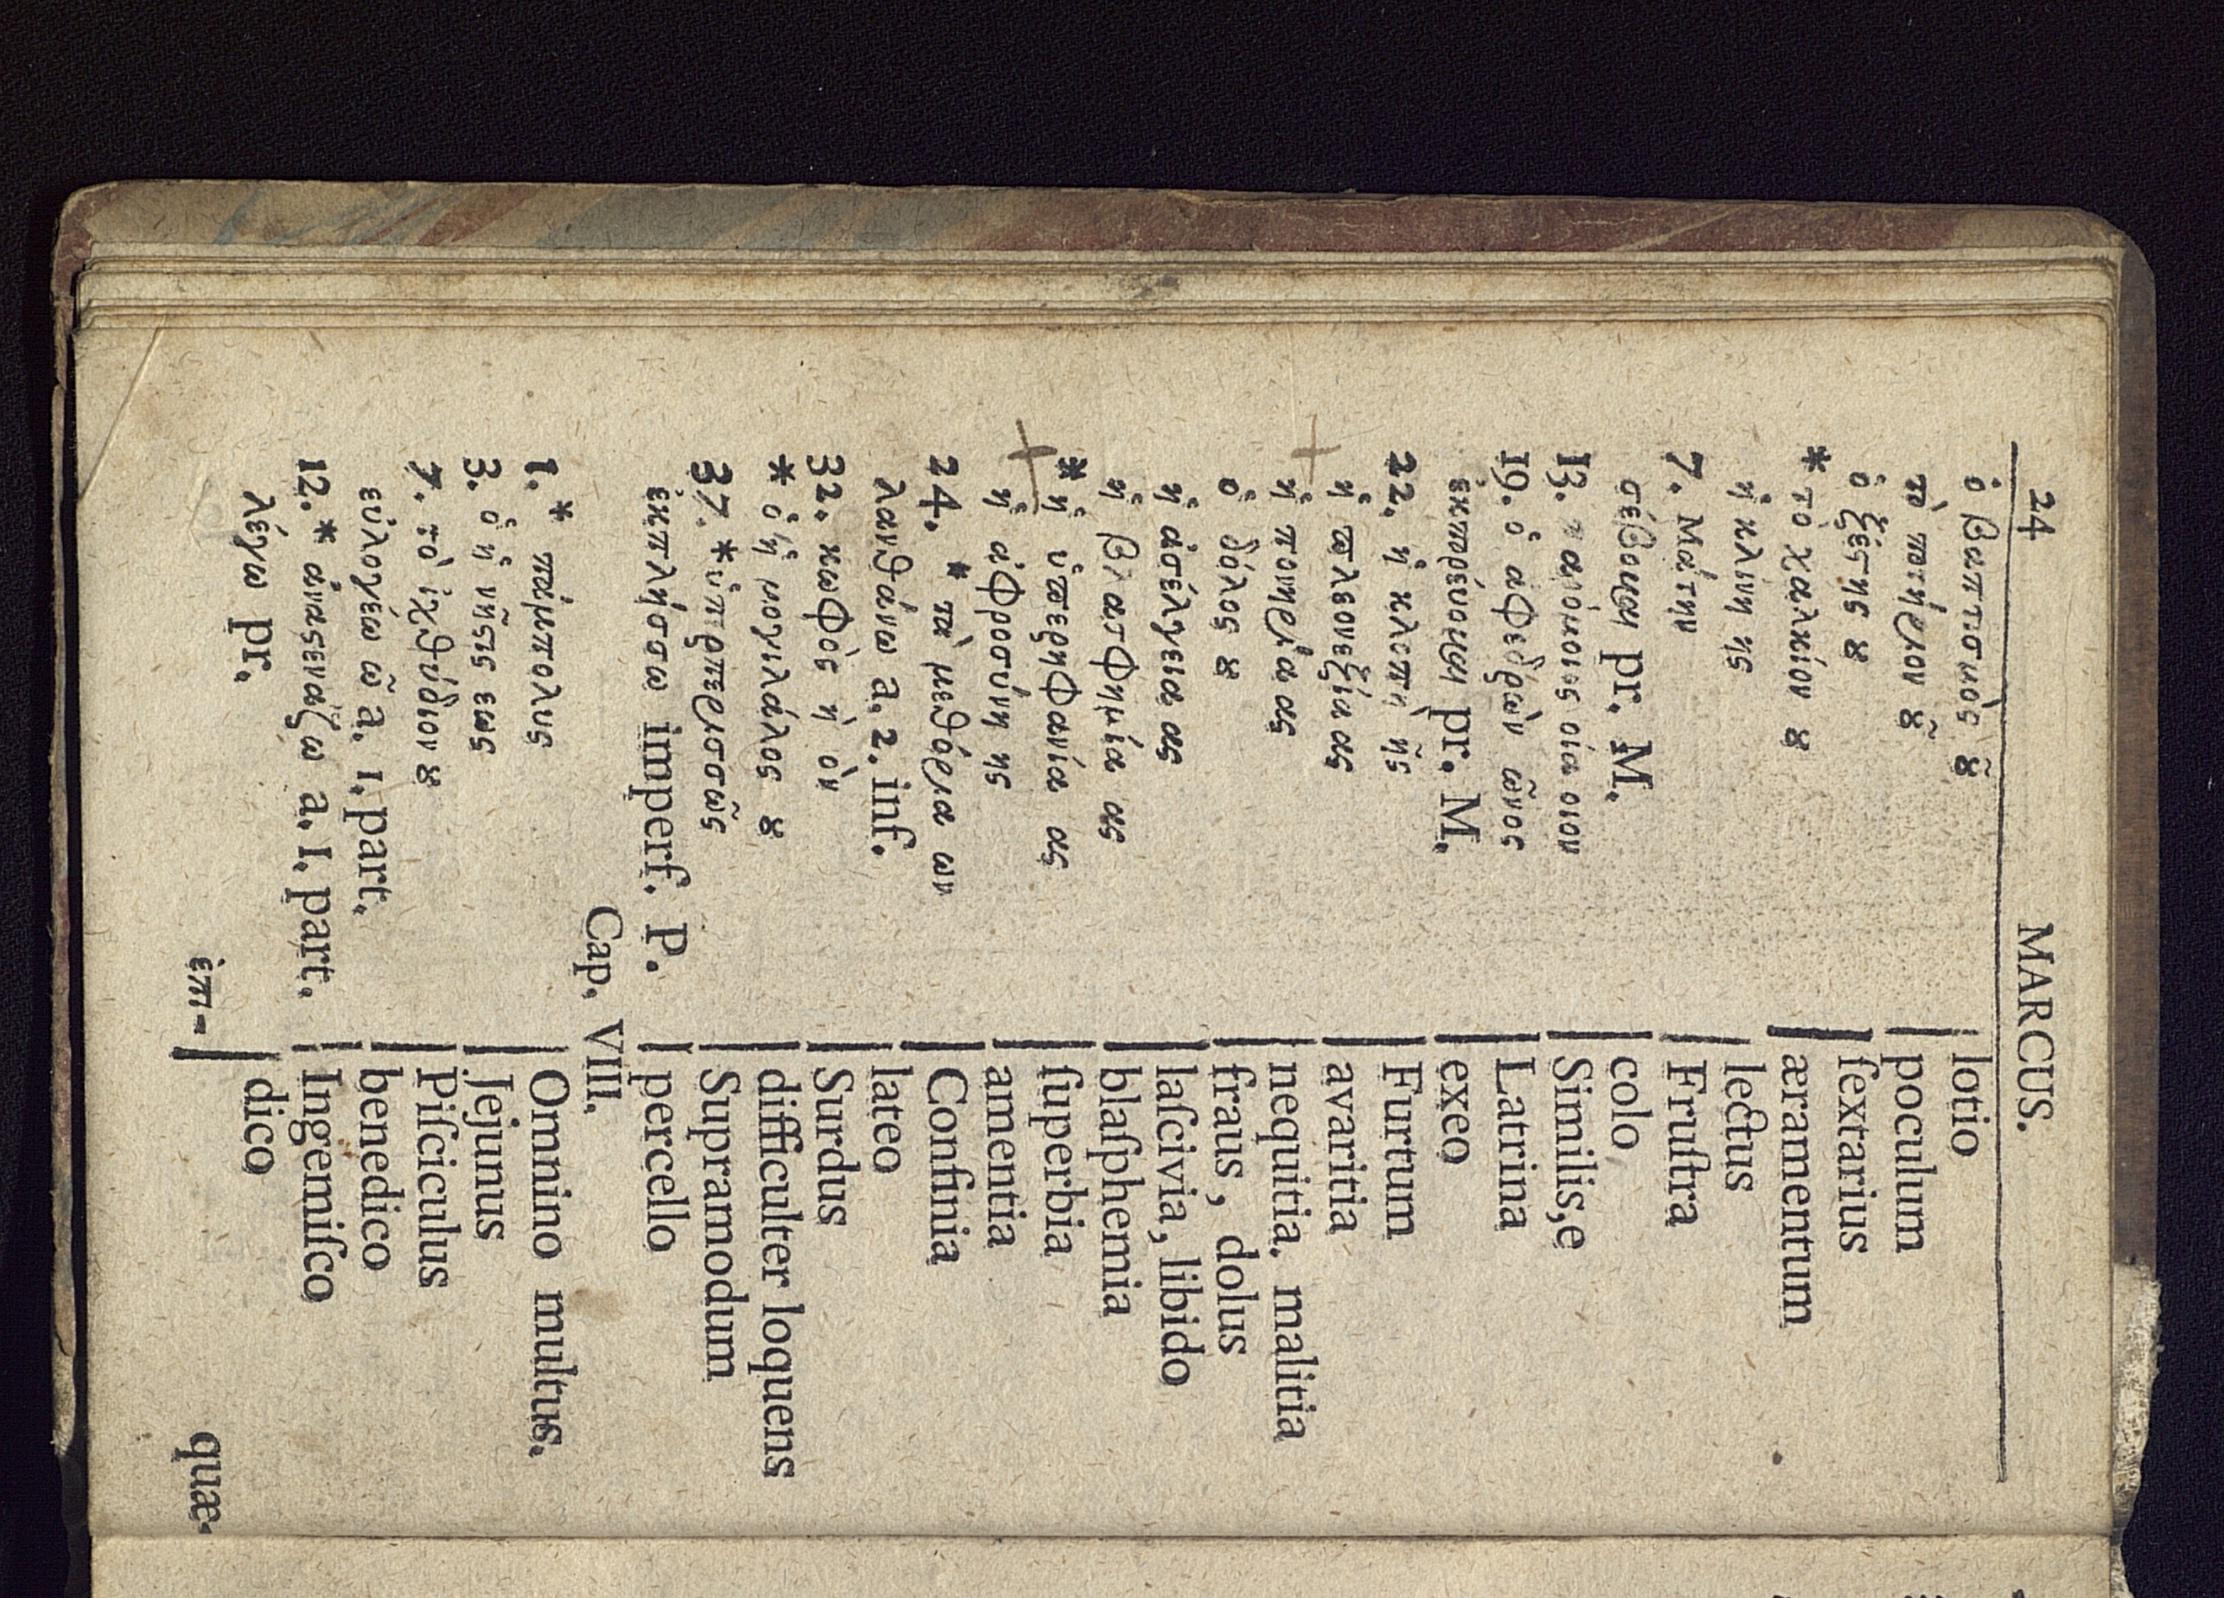 24 MARCUS.
ὁ βαπτισμὸς ȣ͂ | lotio
τὸ ποτήριον ȣ͂ | poculum
ὁ ξέϛης ȣ | ſextarius
* τὸ χαλκίον ȣ | æramentum
ἡ κλίνη ης | lectus
7. Μάτην | Fruſtra
σέβομαι pr. M. | colo
13. παρόμοιος οία οιον | Similis,e
19. ὁ ἀφεδρὼν ῶνος | Latrina
ἐκπορέυομαι pr. M. | exeo
22. ἡ κλοπὴ ῆς | Furtum
ἡ πλεονεξία ας | avaritia
ἡ πονηρία ας | nequitia, malitia
ὁ δόλος ȣ | fraus, dolus
ἡ ἀσέλγεια ας | laſcivia, libido
ἡ βλασφημία ας | blaſphemia
* ἡ ὑπερηφανία ας | ſuperbia
ἡ ἀφροσύνη ης | amentia
24. * τὰ μεθόρια ων | Confinia
λανθάνω a. 2. inf. | lateo
32. κωφὸς ὴ ὸν | Surdus
* ὁ ἡ μογιλάλος ȣ | difficulter loquens
37. * ὑπερπερισσῶς | Supramodum
ἐκπλήσσω imperf. P. | percello
Cap. VIII.
1. * πάμπολυς | Omnino multus.
3. ὁ ἡ νῆϛις εως | Jejunus
7. τὸ ἰχθύδιον ȣ | Piſciculus
εὐλογέω ῶ a. 1. part. | benedico
12. * ἀναϛενάζω a. 1. part. | Ingemiſco
λέγω pr. | dico
ἐπι- quæ-